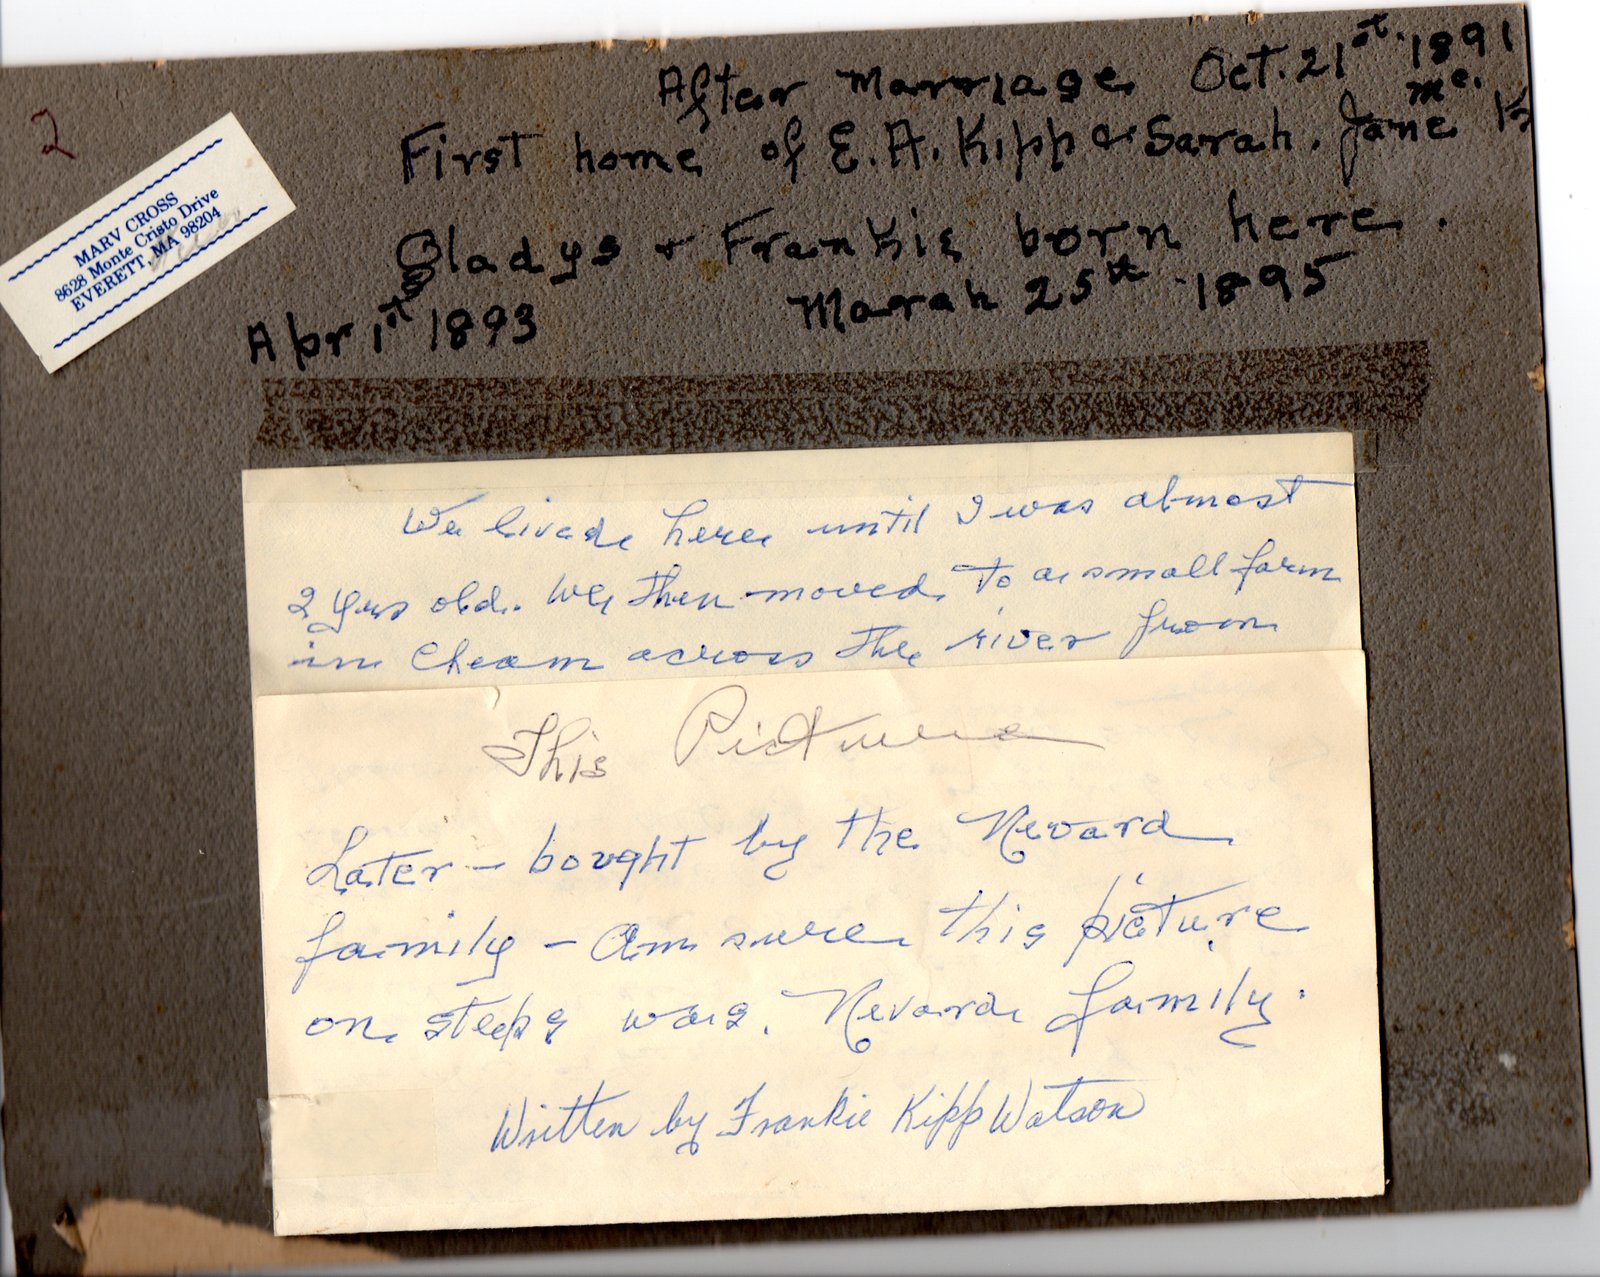 After Marriage Oct. 21st. 1891
First home of E.A. Kipp & Sarah. Jane Mc.
Gladys & Frankie born here.
Apr 1st 1893 March 25th - 1895
2
MARV CROSS
8628 Monte Cristo Drive
EVERETT, MA 98204
We lived here until I was almost
2 yrs old. We then moved to a small farm
in Cheam across the river from
This Picture
Later - bought by the Nevard
family - Am sure this picture
on steps was. Nevard family.
Written by Frankie Kipp Watson